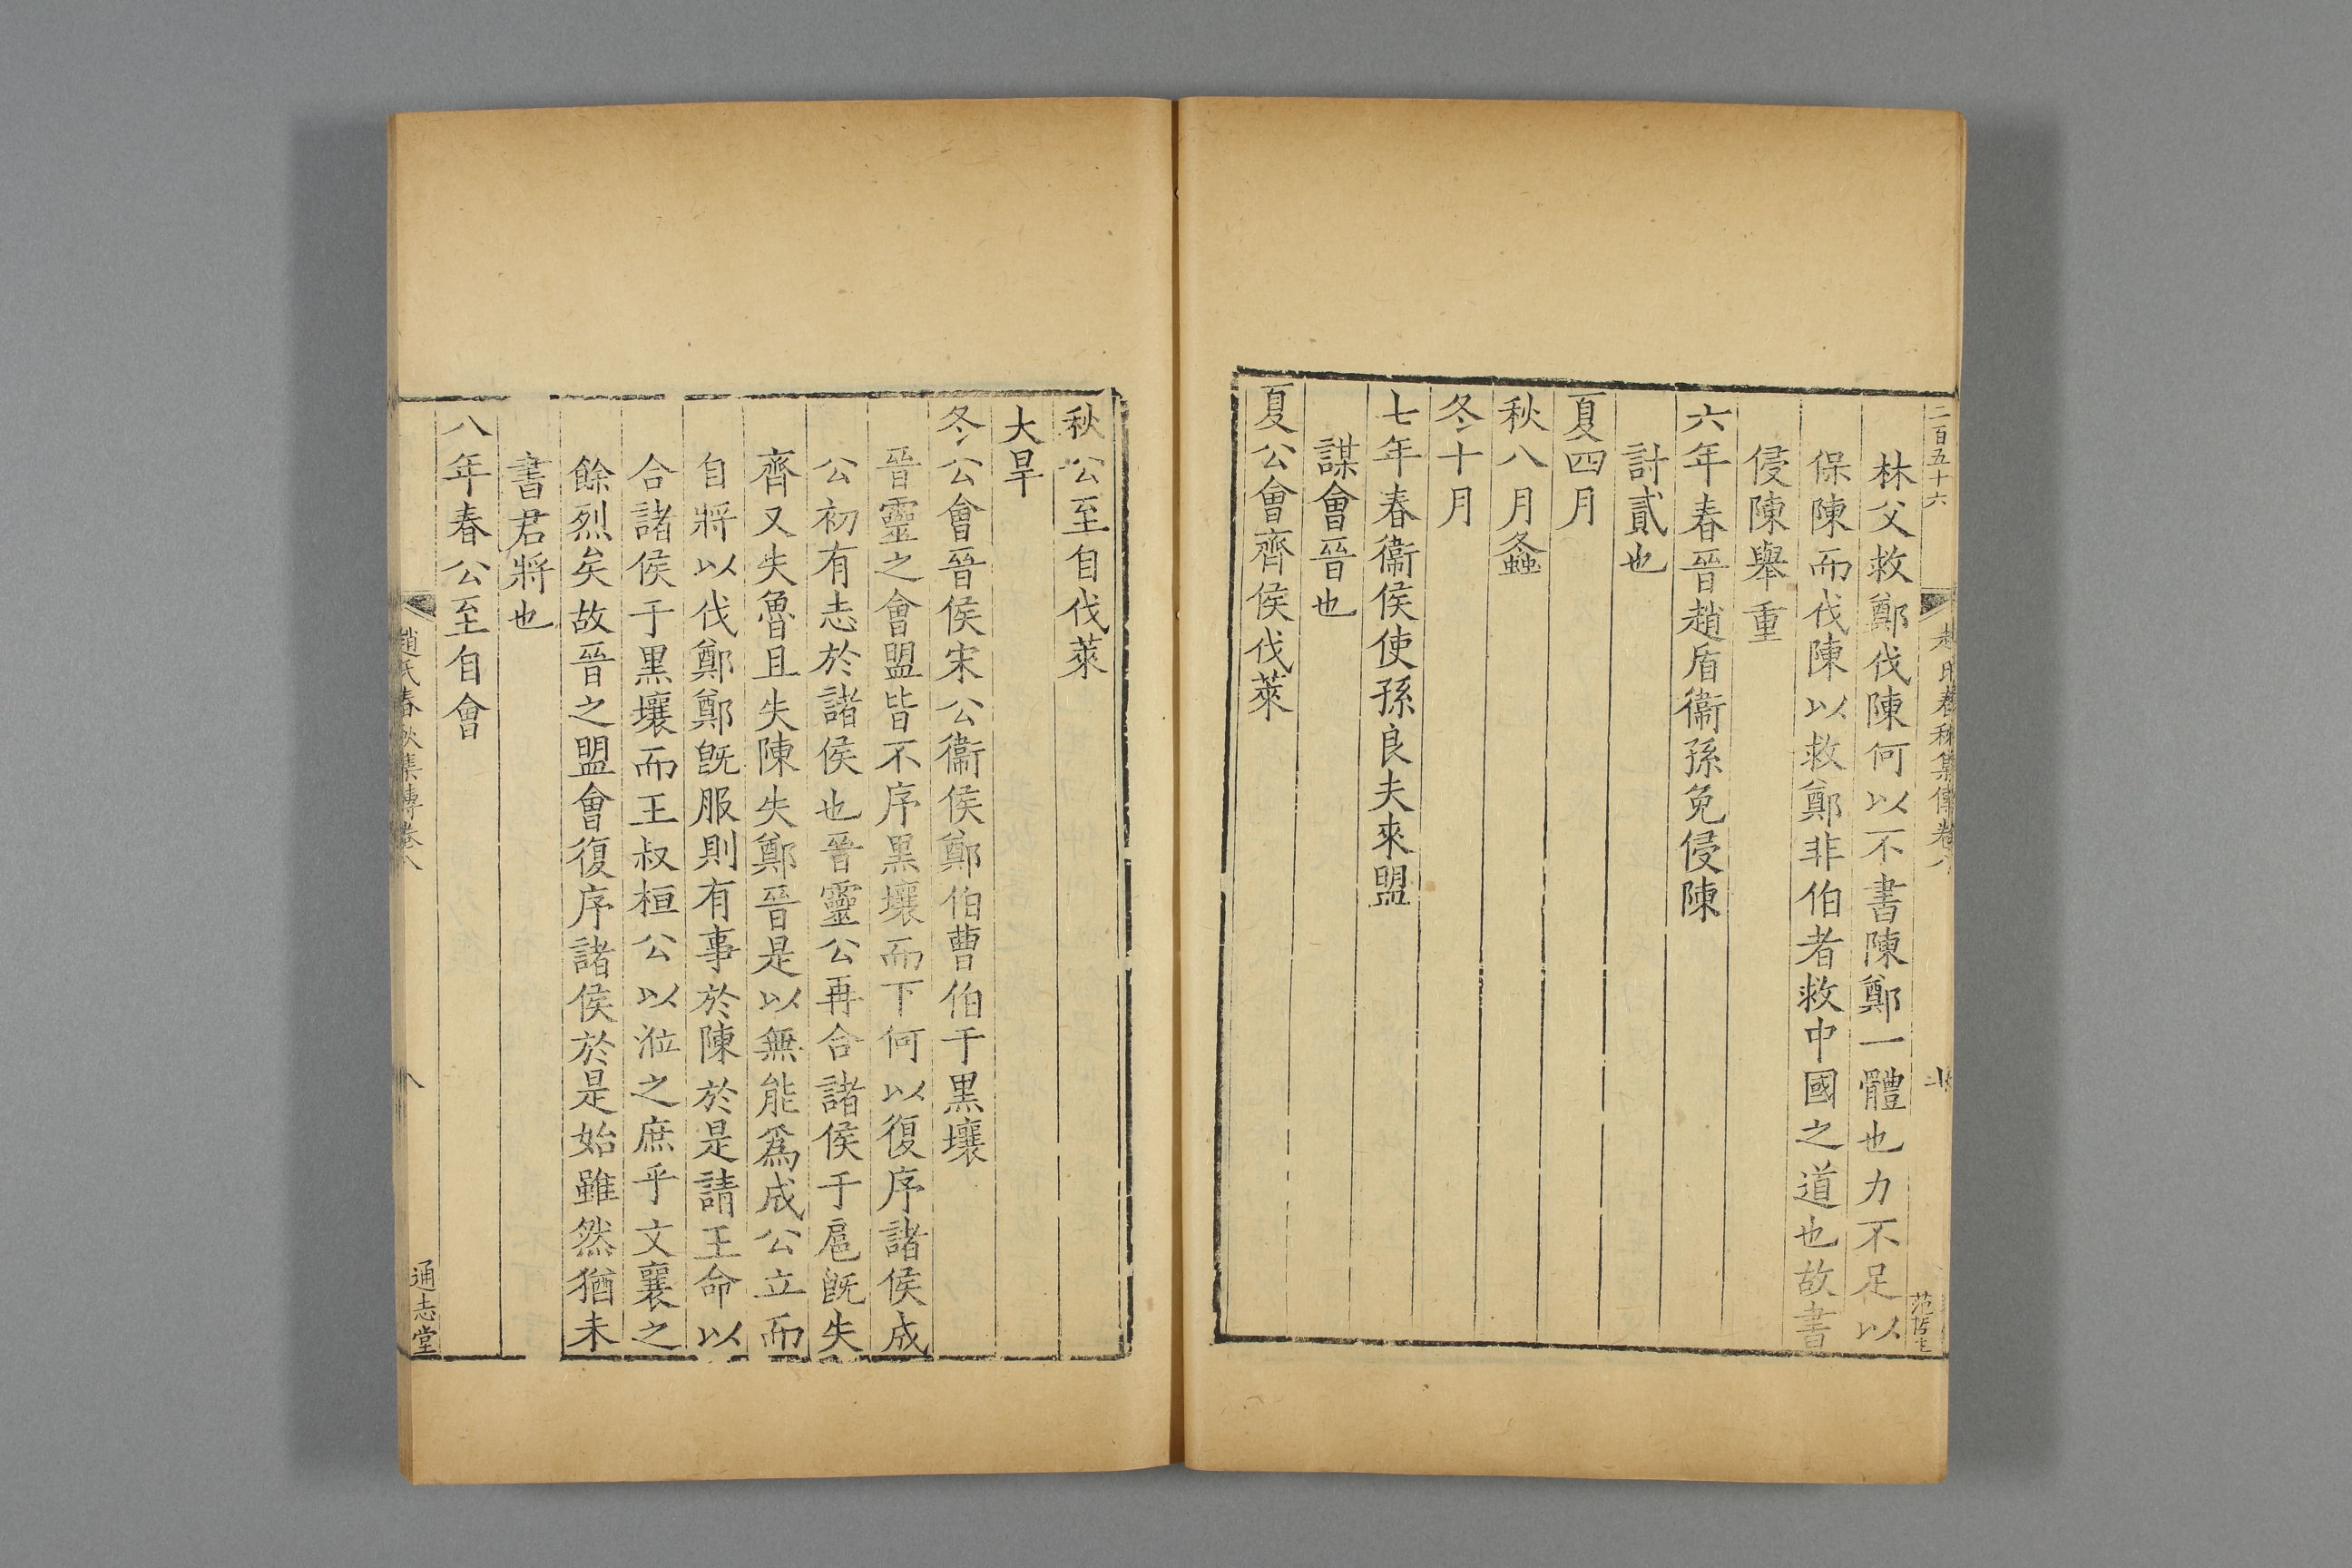 二百五十六
趙氏春秋集傳卷八
林父救鄭伐陳何以不書陳鄭一體也力不足以
保陳而伐陳以救鄭非伯者救中國之道也故書
侵陳舉重
六年春晉趙盾衞孫免侵陳
討貳也
夏四月
秋八月螽
冬十月
七年春衞侯使孫良夫來盟
謀會晉也
夏公會齊侯伐萊
秋公至自伐萊
大旱
冬公會晉侯宋公衞侯鄭伯曹伯于黑壤
晉靈之會盟皆不序黑壤而下何以復序諸侯成
公初有志於諸侯也晉靈公再合諸侯于扈旣失
齊又失魯且失陳失鄭晉是以無能爲成公立而
自將以伐鄭鄭旣服則有事於陳於是請王命以
合諸侯于黑壤而王叔桓公以涖之庶乎文襄之
餘烈矣故晉之盟會復序諸侯於是始雖然猶未
書君將也
八年春公至自會
趙氏春秋集傳卷八
八
通志堂